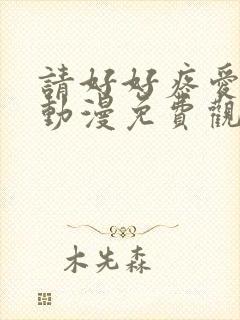 請好好疼愛
動漫免費觀
木先森